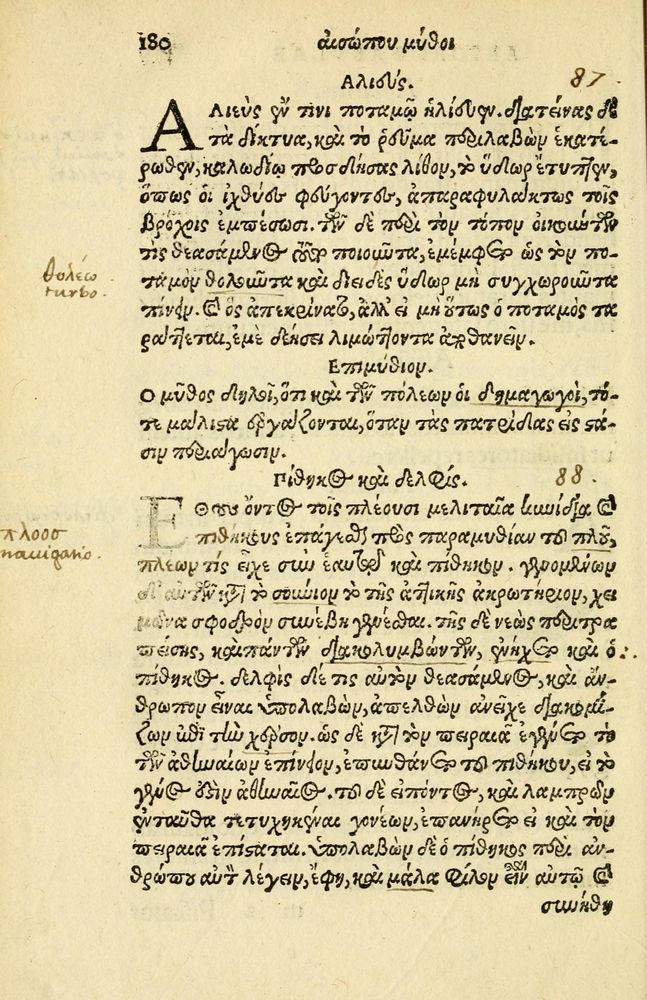 180 αἰσώπου μῦθοι
Αλιεύς. 87.
ΑΛιεὺς ἔν τινι ποταμῷ ἡλίευεν. διατείνας δὲ
τὰ δίκτυα, καὶ τὸ ῥεῦμα περιλαβὼν ἑκατέ-
ρωθεν, καλωδίῳ προσδήσας λίθον, τὸ ὕδωρ ἔτυπτεν,
ὅπως οἱ ἰχθύες φεύγοντες, ἀπαραφυλάκτως τοῖς
βρόχοις ἐμπέσωσι. τῶν δὲ περὶ τὸν τόπον οἰκούντων
τὶς θεασάμενος οὕτω ποιοῦντα, ἐμέμφετο ὡς τὸν πο-
θολέω
turbo.
ταμὸν θολοῦντα καὶ διειδὲς ὕδωρ μὴ συγχωροῦντα
πίνειν. καὶ ὃς ἀπεκρίνατο, ἀλλ' εἰ μὴ οὕτως ὁ ποταμὸς τα
ράττεται, ἐμὲ δεήσει λιμώττοντα ἀποθανεῖν.
Επιμύθιον.
Ο μῦθος δηλοῖ, ὅτι καὶ τῶν πόλεων οἱ δημαγωγοὶ, τό-
τε μάλιστα ἐργάζονται, ὅταν τὰς πατρίδας εἰς στά-
σιν περιάγωσιν.
Πίθηκος καὶ δελφίς. 88.
ΕΘους ὄντος τοῖς πλέουσι μελιταῖα κυνίδια καὶ
πλοοσ
nauigatio.
πιθήκους ἐπάγεσθαι πρὸς παραμυθίαν τοῦ πλοῦ,
πλέων τίς εἶχε σὺν ἑαυτῷ καὶ πίθηκον. γενομένων
δ' αὐτῶν κατὰ τὸ σούνιον τὸ τῆς ἀττικῆς ἀκρωτήριον, χει
μῶνα σφοδρὸν συνέβη γενέσθαι. τῆς δὲ νεὼς περιτρα
πείσης, καὶ πάντων διακολυμβώντων, ἐνήχετο καὶ ὁ
πίθηκος. δελφὶς δέ τις αὐτὸν θεασάμενος, καὶ ἄν-
θρωπον εἶναι ὑπολαβὼν, ἀπελθὼν ἀνεῖχε διακομί-
ζων ἐπὶ τὴν χέρσον. ὡς δὲ κατὰ τὸν πειραιᾶ ἐγένετο τὸ
τῶν ἀθηναίων ἐπίνειον, ἐπυνθάνετο τοῦ πιθήκου, εἰ τὸ
γένος ἐστὶν ἀθηναῖος. τοῦ δὲ εἰπόντος, καὶ λαμπρῶν
ἐνταῦθα τετυχηκέναι γονέων, ἐπανήρετο εἰ καὶ τὸν
πειραιᾶ ἐπίσταται. ὑπολαβὼν δὲ ὁ πίθηκος περὶ ἀν-
θρώπου αὐτὸν λέγειν, ἔφη, καὶ μάλα φίλον εἶναι αὐτῷ καὶ
συνήθη